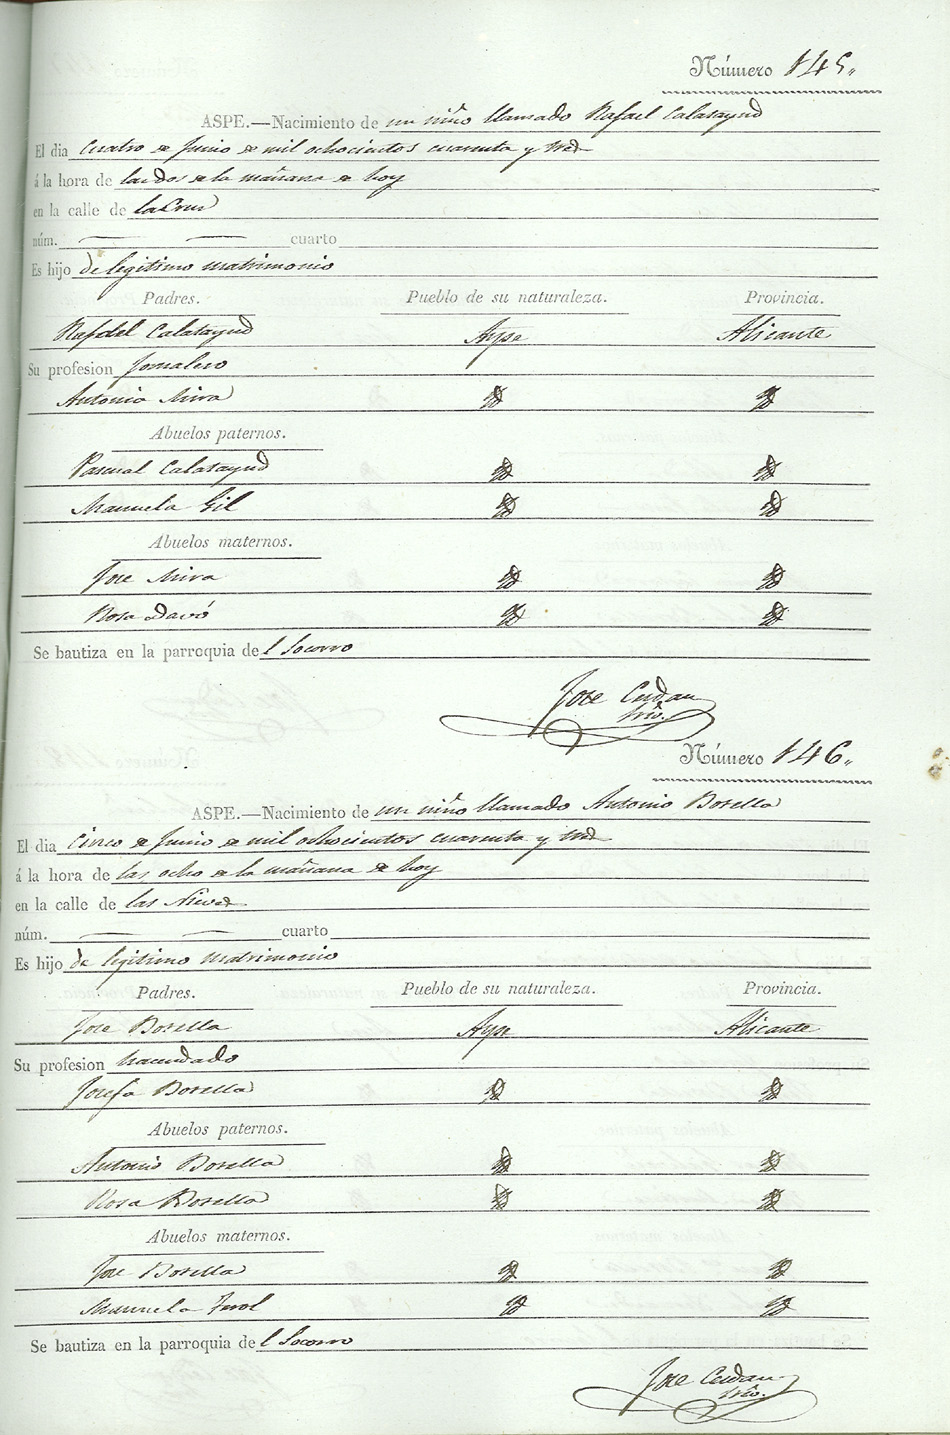 Número 145.
ASPE.—Nacimiento de un niño llamado Rafael Calatayud
El dia Cuatro de Junio de mil ochocientos cuarenta y tres
á la hora de las dos de la mañana de hoy
en la calle de la Cruz
núm. — — cuarto
Es hijo de legitimo matrimonio
Padres. Pueblo de su naturaleza. Provincia.
Rafael Calatayud Aspe Alicante
Su profesion Jornalero
Antonia Mira id id
Abuelos paternos.
Pascual Calatayud id id
Manuela Gil id id
Abuelos maternos.
Jose Mira id id
Rosa Davó id id
Se bautiza en la parroquia del Socorro
Jose Cerdan
Srio.
Número 146.
ASPE.—Nacimiento de un niño llamado Antonio Botella
El dia Cinco de Junio de mil ochocientos cuarenta y tres
á la hora de las ocho de la mañana de hoy
en la calle de las Nieves
núm. — — cuarto
Es hijo de legitimo matrimonio
Padres. Pueblo de su naturaleza. Provincia.
Jose Botella Aspe Alicante
Su profesion hacendado
Josefa Botella id id
Abuelos paternos.
Antonio Botella id id
Rosa Botella id id
Abuelos maternos.
Jose Botella id id
Manuela id id
Se bautiza en la parroquia del Socorro
Jose Cerdan
Srio.